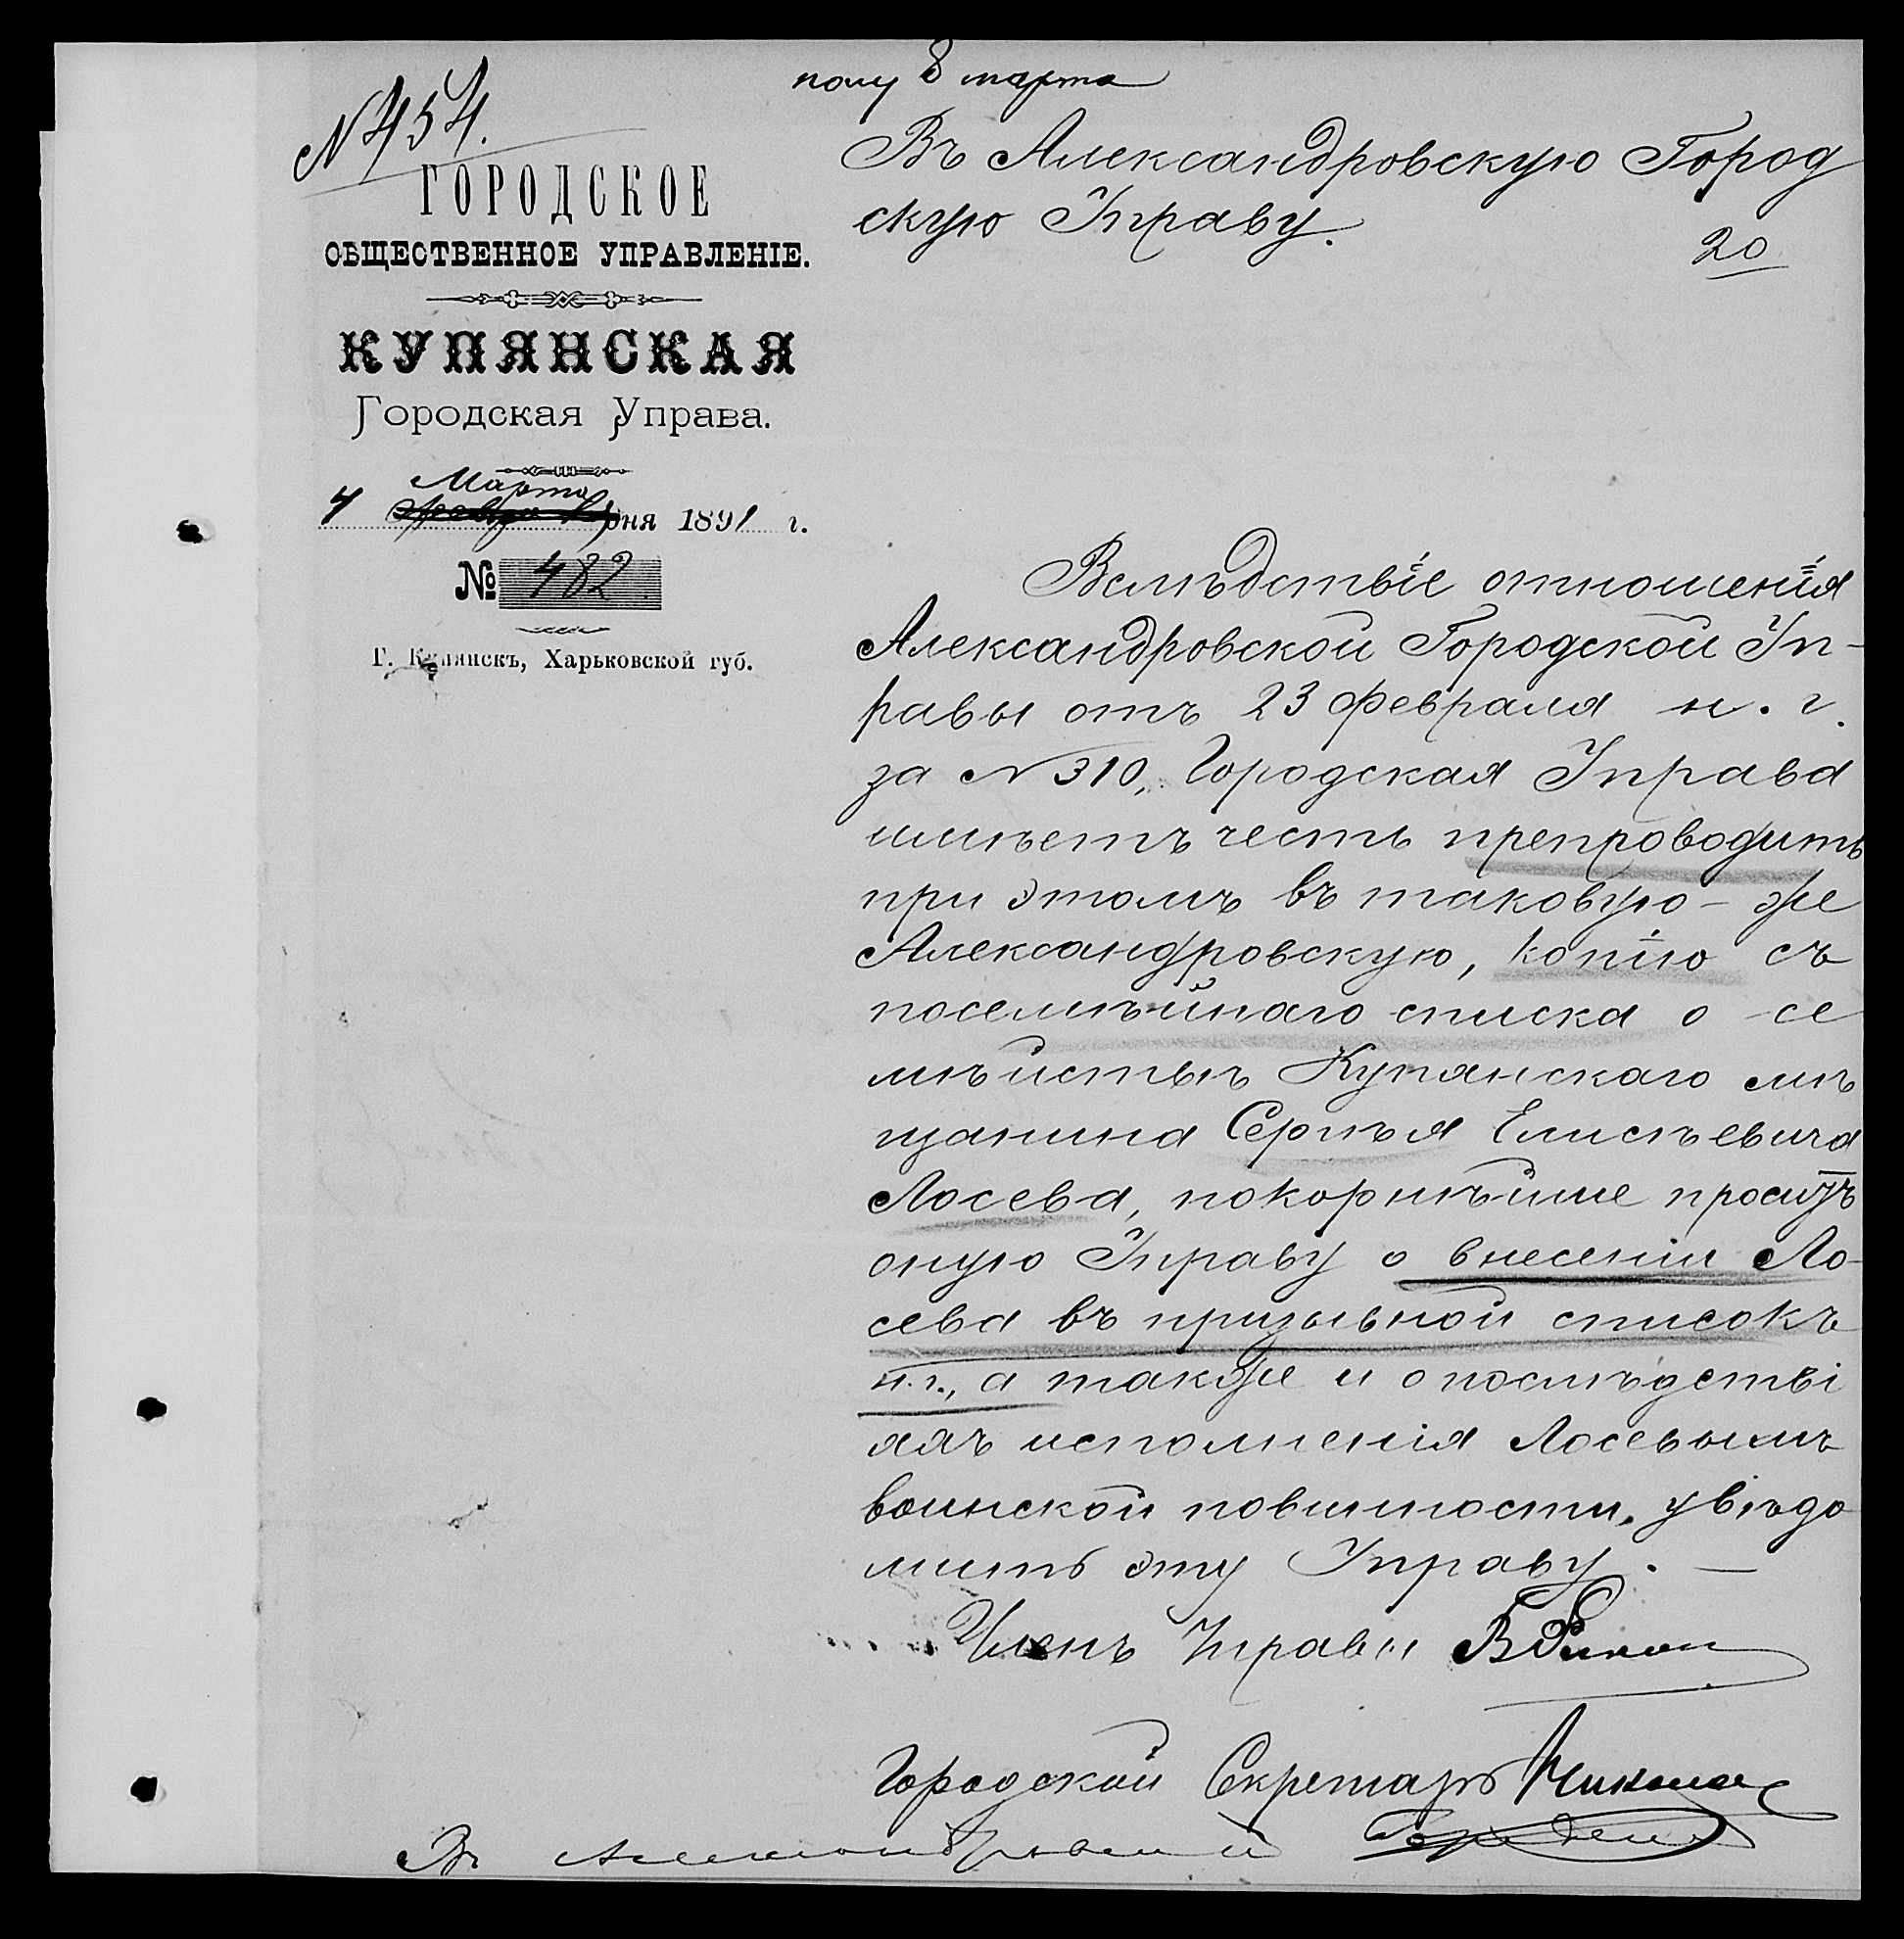 полу 8 марта
№ 454.
Въ Александровскую Город
скую Управу.
20
ГОРОДСКОЕ
ОБЩЕСТВЕННОЕ УПРАВЛЕНІЕ.
КУПЯНСКАЯ
Городская Управа.
Марта
4 дня 1891 г.
№ 482
Г. Купянскъ, Харьковской губ.
Вслѣдствіе отношенія
Александровской Городской Уп-
равы отъ 23 февраля н. г.
за № 310, Городская Управа
имѣетъ честь препроводить
при этомъ въ таковую-же
Александровскую, копію съ
посемѣйнаго списка о се
мѣйствѣ Купянскаго мѣ
щанина Сергѣя Елисѣевича
Лосева, покорнѣйше проситъ
оную Управу о внесеніи Ло-
сева въ призывной списокъ
н.г., а также и о послѣдстві
яхъ исполненія Лосевымъ
воинской повинности, увѣдо
мить эту Управу. —
Членъ Управы
Городской Секретарь
Въ